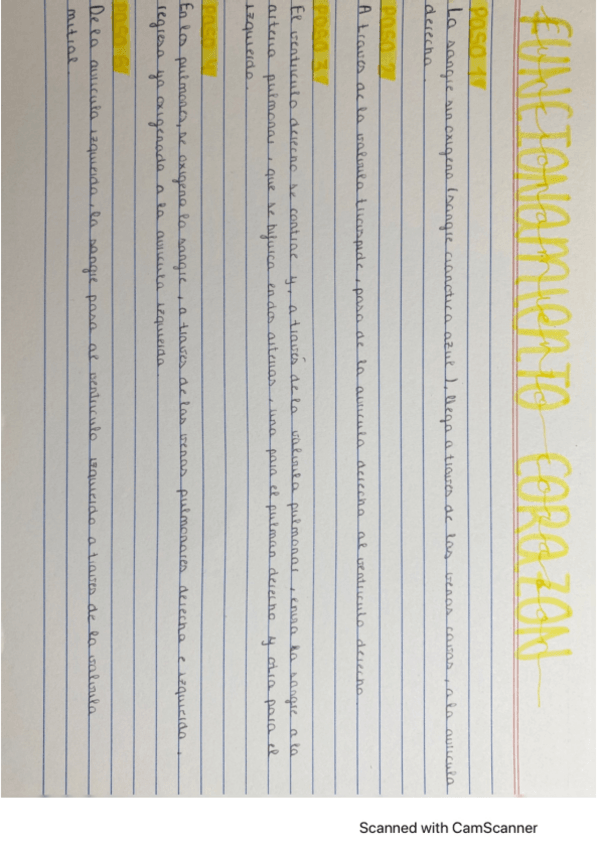 FUNCIONAMIENTO CORAZON
PASO 1
La sangre sin oxigeno (sangre cianotica azul), llega a traves de las venas cavas, a la auricula
derecha.
PASO 2
A traves de la valvula tricuspide, pasa de la auricula derecha al ventriculo derecho.
PASO 3
El ventriculo derecho se contrae y, a través de la valvula pulmonar, envia la sangre a la
arteria pulmonar, que se bifurca en dos arterias, una para el pulmon derecho y otra para el
izquierdo.
PASO 4
En los pulmones, se oxigena la sangre, a traves de las venas pulmonares derecha e izquierda,
regresa ya oxigenada a la auricula izquierda.
PASO 5
De la auricula izquierda, la sangre pasa al ventriculo izquierdo a traves de la valvula
mitral.
Scanned with CamScanner